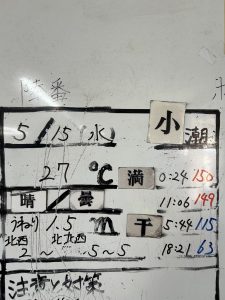 陸番
5/15(水) 小潮
27℃ 満 0:24 150
晴/曇 11:06 149
うねり 1.5m 干 5:44 115
北西 北北西
2〜 5~5 18:21 63
注意と対策